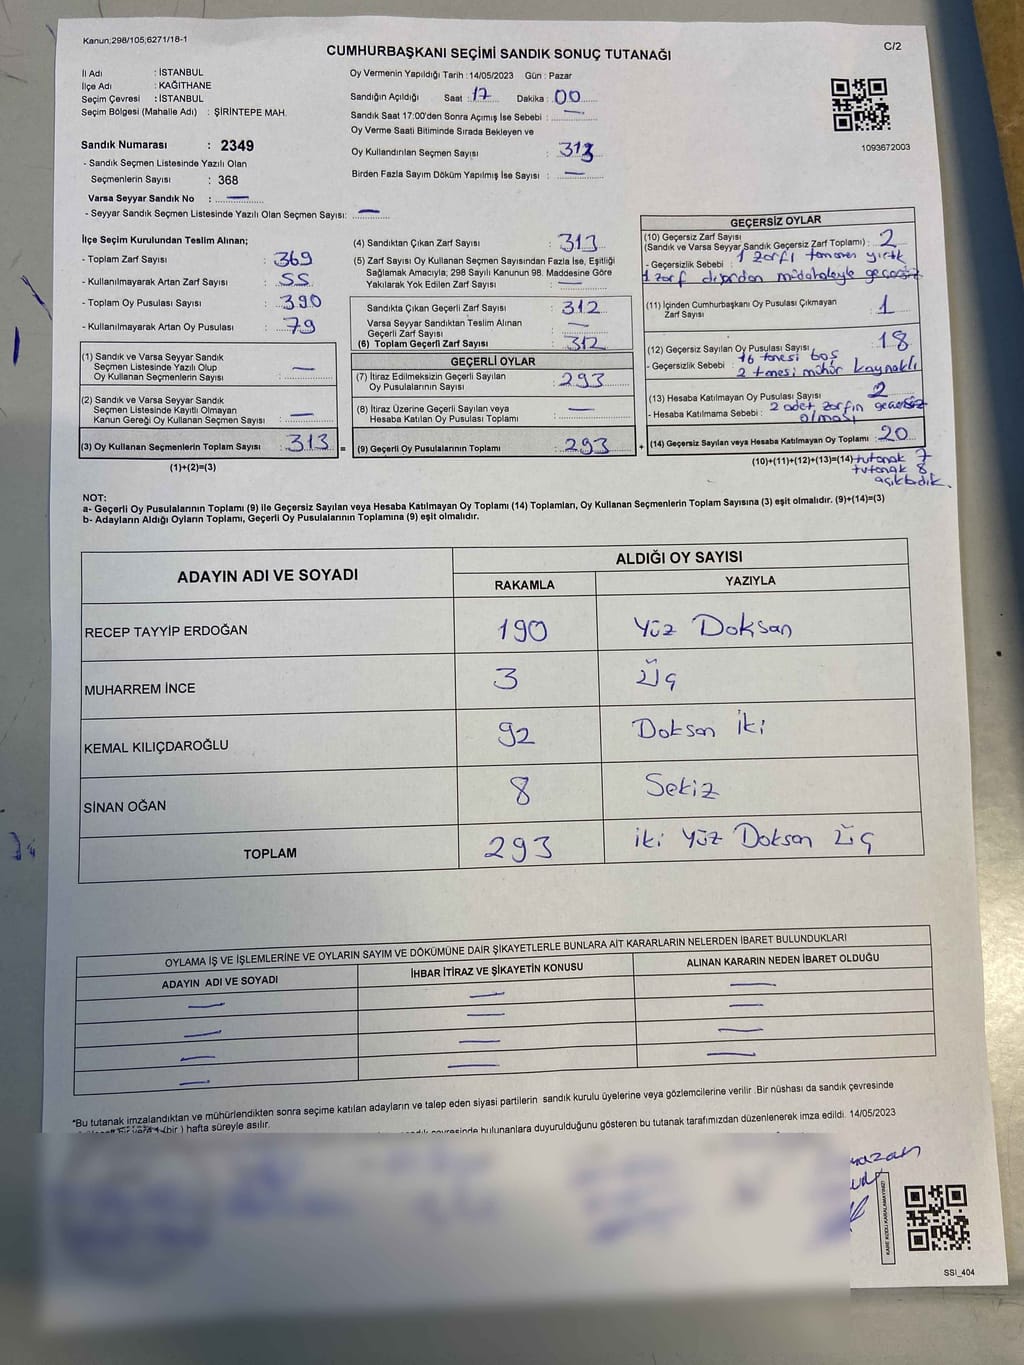 Kanun;298/105;6271/18-1
C/2
CUMHURBAŞKANI SEÇİMİ SANDIK SONUÇ TUTANAĞI
İl Adı : İSTANBUL
İlçe Adı : KAĞITHANE
Seçim Çevresi : İSTANBUL
Seçim Bölgesi (Mahalle Adı) : ŞİRİNTEPE MAH.
Sandık Numarası : 2349
- Sandık Seçmen Listesinde Yazılı Olan
Seçmenlerin Sayısı : 368
Varsa Seyyar Sandık No : —
- Seyyar Sandık Seçmen Listesinde Yazılı Olan Seçmen Sayısı: —
Oy Vermenin Yapıldığı Tarih : 14/05/2023 Gün : Pazar
Sandığın Açıldığı Saat : 17 Dakika : 00
Sandık Saat 17:00'den Sonra Açımış İse Sebebi : —
Oy Verme Saati Bitiminde Sırada Bekleyen ve
Oy Kullandırılan Seçmen Sayısı : 313
Birden Fazla Sayım Döküm Yapılmış İse Sayısı : —
1093672003
İlçe Seçim Kurulundan Teslim Alınan;
- Toplam Zarf Sayısı : 369
- Kullanılmayarak Artan Zarf Sayısı : 55
- Toplam Oy Pusulası Sayısı : 390
- Kullanılmayarak Artan Oy Pusulası : 79
(1) Sandık ve Varsa Seyyar Sandık
Seçmen Listesinde Yazılı Olup
Oy Kullanan Seçmenlerin Sayısı : —
(2) Sandık ve Varsa Seyyar Sandık
Seçmen Listesinde Kayıtlı Olmayan
Kanun Gereği Oy Kullanan Seçmen Sayısı : —
(3) Oy Kullanan Seçmenlerin Toplam Sayısı : 313 =
(1)+(2)=(3)
(4) Sandıktan Çıkan Zarf Sayısı : 313
(5) Zarf Sayısı Oy Kullanan Seçmen Sayısından Fazla İse, Eşitliği
Sağlamak Amacıyla; 298 Sayılı Kanunun 98. Maddesine Göre
Yakılarak Yok Edilen Zarf Sayısı : —
Sandıkta Çıkan Geçerli Zarf Sayısı : 312
Varsa Seyyar Sandıktan Teslim Alınan
Geçerli Zarf Sayısı : —
(6) Toplam Geçerli Zarf Sayısı : 312
GEÇERLİ OYLAR
(7) İtiraz Edilmeksizin Geçerli Sayılan
Oy Pusulalarının Sayısı : 293
(8) İtiraz Üzerine Geçerli Sayılan veya
Hesaba Katılan Oy Pusulası Toplamı : —
(9) Geçerli Oy Pusulalarının Toplamı : 293 +
GEÇERSİZ OYLAR
(10) Geçersiz Zarf Sayısı
(Sandık ve Varsa Seyyar Sandık Geçersiz Zarf Toplamı) : 2
- Geçersizlik Sebebi : 1 zarfı tamamen yırtık
1 zarf dışardan müdahaleyle geçersiz
(11) İçinden Cumhurbaşkanı Oy Pusulası Çıkmayan
Zarf Sayısı : 1
(12) Geçersiz Sayılan Oy Pusulası Sayısı : 18
- Geçersizlik Sebebi : 16 tanesi boş
2 tanesi mühür kaynaklı
(13) Hesaba Katılmayan Oy Pusulası Sayısı : 2
- Hesaba Katılmama Sebebi : 2 adet zarfın geçersiz
olması
(14) Geçersiz Sayılan veya Hesaba Katılmayan Oy Toplamı : 20
(10)+(11)+(12)+(13)=(14) tutanak 7
tutanak 8
açıkbdık.
NOT:
a- Geçerli Oy Pusulalarının Toplamı (9) ile Geçersiz Sayılan veya Hesaba Katılmayan Oy Toplamı (14) Toplamları, Oy Kullanan Seçmenlerin Toplam Sayısına (3) eşit olmalıdır. (9)+(14)=(3)
b- Adayların Aldığı Oyların Toplamı, Geçerli Oy Pusulalarının Toplamına (9) eşit olmalıdır.
ADAYIN ADI VE SOYADI
ALDIĞI OY SAYISI
RAKAMLA YAZIYLA
RECEP TAYYİP ERDOĞAN 190 Yüz Doksan
MUHARREM İNCE 3 Üç
KEMAL KILIÇDAROĞLU 92 Doksan İki
SİNAN OĞAN 8 Sekiz
TOPLAM 293 iki Yüz Doksan Üç
OYLAMA İŞ VE İŞLEMLERİNE VE OYLARIN SAYIM VE DÖKÜMÜNE DAİR ŞİKAYETLERLE BUNLARA AİT KARARLARIN NELERDEN İBARET BULUNDUKLARI
ADAYIN ADI VE SOYADI İHBAR İTİRAZ VE ŞİKAYETİN KONUSU ALINAN KARARIN NEDEN İBARET OLDUĞU
*Bu tutanak imzalandıktan ve mühürlendikten sonra seçime katılan adayların ve talep eden siyasi partilerin sandık kurulu üyelerine veya gözlemcilerine verilir .Bir nüshası da sandık çevresinde
(bir ) hafta süreyle asılır.
çevresinde bulunanlara duyurulduğunu gösteren bu tutanak tarafımızdan düzenlenerek imza edildi. 14/05/2023
KARE KODU KARALAMAYINIZ!
SSI_404